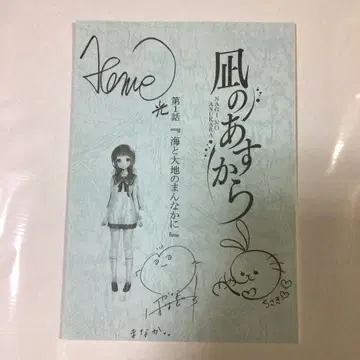 凪のあすから
NAGI NO ASUKARA
第1話『海と大地のまんなかに』
光
まなか..
ちさき